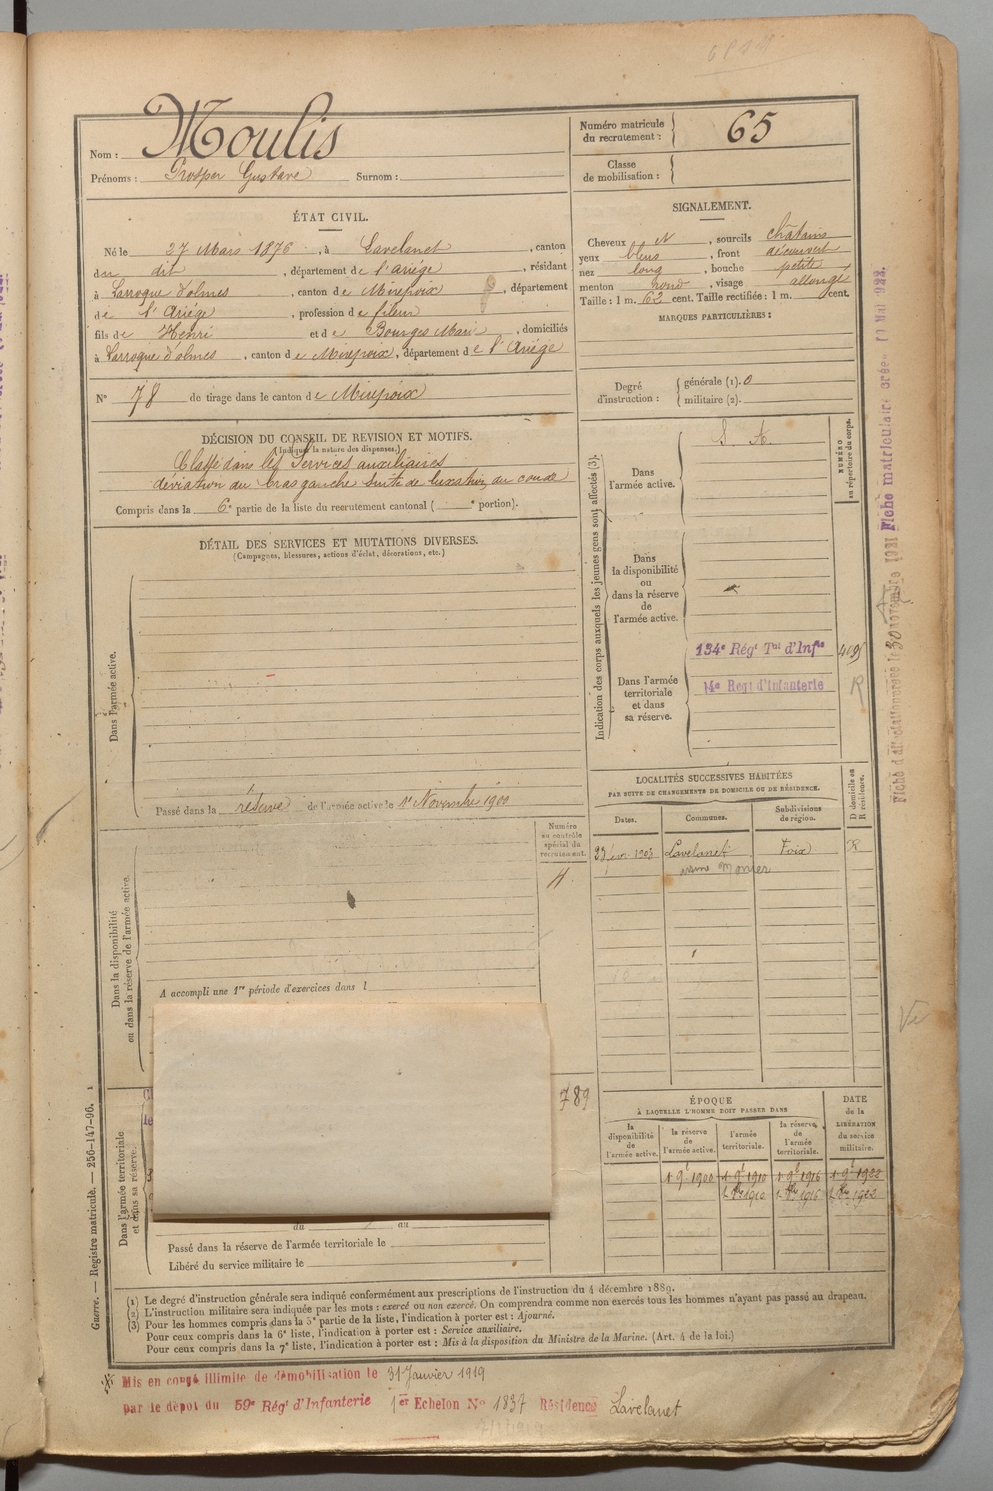 Nom : Moulis
Prénoms : Prosper Gustave Surnom :
Numéro matricule du recrutement : 65
Classe de mobilisation :
ÉTAT CIVIL.
Né le 27 Mars 1876, à Lavelanet, canton
du dit, département de l'Ariège, résidant
à Larroque d'olmes, canton de Mirepoix, département
de l'Ariège, profession de fileur
fils de Henri et de Bourges Marie, domiciliés
à Larroque d'olmes, canton de Mirepoix, département de l'Ariège
N° 78 de tirage dans le canton de Mirepoix
SIGNALEMENT.
Cheveux N, sourcils châtains
yeux bleus, front découvert
nez long, bouche petite
menton rond, visage allongé
Taille : 1 m. 62 cent. Taille rectifiée : 1 m. cent.
MARQUES PARTICULIÈRES :
Degré d'instruction : générale (1). 0
militaire (2).
DÉCISION DU CONSEIL DE REVISION ET MOTIFS.
(Indiquer la nature des dispenses.)
Classé dans les Services auxiliaires
déviation du bras gauche suite de luxation du coude
Compris dans la 6e partie de la liste du recrutement cantonal ( e portion).
DÉTAIL DES SERVICES ET MUTATIONS DIVERSES.
(Campagnes, blessures, actions d'éclat, décorations, etc.)
Dans l'armée active.
Passé dans la réserve de l'armée active le 1er Novembre 1900
Dans la disponibilité
ou dans la réserve de l'armée active.
Numéro
au contrôle
spécial du
recrutement.
A accompli une 1re période d'exercices dans l
789
Dans l'armée territoriale
et dans sa réserve.
du au
Passé dans la réserve de l'armée territoriale le
Libéré du service militaire le
Indication des corps auxquels les jeunes gens sont affectés (3).
NUMÉRO
au répertoire du corps.
Dans
l'armée active.
S. A.
Dans
la disponibilité
ou
dans la réserve
de
l'armée active.
Dans l'armée
territoriale
et dans
sa réserve.
134e Régt Tal d'Infie
14e Régt d'Infanterie
R
LOCALITÉS SUCCESSIVES HABITÉES
PAR SUITE DE CHANGEMENTS DE DOMICILE OU DE RÉSIDENCE.
D domicile ou
R résidence.
Dates. Communes. Subdivisions de région.
23 févr. 1903 Lavelanet Foix R
usine Monier
ÉPOQUE
À LAQUELLE L'HOMME DOIT PASSER DANS
la disponibilité de l'armée active.
la réserve de l'armée active.
l'armée territoriale.
la réserve de l'armée territoriale.
DATE de la LIBÉRATION du service militaire.
1 9b 1900 1 9b 1910 1 9b 1916 1 9b 1922
(1) Le degré d'instruction générale sera indiqué conformément aux prescriptions de l'instruction du 4 décembre 1889.
(2) L'instruction militaire sera indiquée par les mots : exercé ou non exercé. On comprendra comme non exercés tous les hommes n'ayant pas passé au drapeau.
(3) Pour les hommes compris dans la 5e partie de la liste, l'indication à porter est : Ajourné.
Pour ceux compris dans la 6e liste, l'indication à porter est : Service auxiliaire.
Pour ceux compris dans la 7e liste, l'indication à porter est : Mis à la disposition du Ministre de la Marine. (Art. 4 de la loi.)
Mis en congé illimité de démobilisation le 31 Janvier 1919
par le dépôt du 59e Régt d'Infanterie 1er Echelon N° 1837 Résidence Lavelanet
Guerre. — Registre matricule. — 256-147-96.
Fiche matriculaire créée